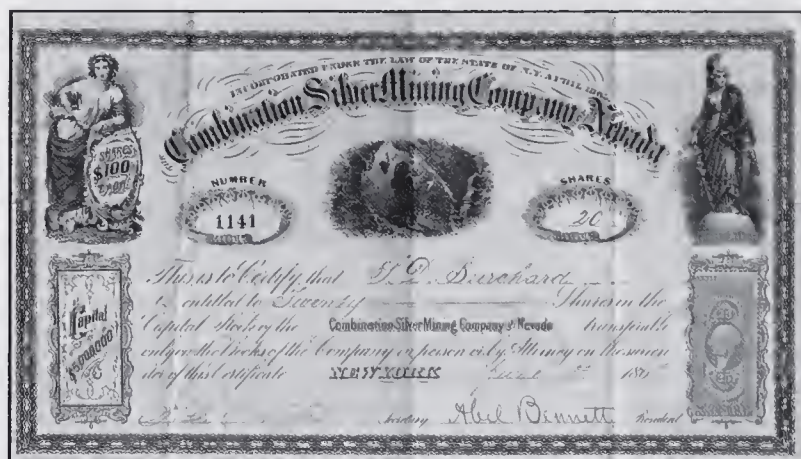 INCORPORATED UNDER THE LAW OF THE STATE OF N.Y. APRIL
THE Combination Silver Mining Company of Nevada
SHARES
$100
EACH
NUMBER
1141
SHARES
20
This is to Certify that
is entitled to Twenty Shares in the
Capital Stock of the Combination Silver Mining Company of Nevada transferable
only on the Books of the Company in person or by Attorney on the surren
der of this Certificate
NEW YORK 187
Capital
$5,000,000
Secretary Abel Bennett President